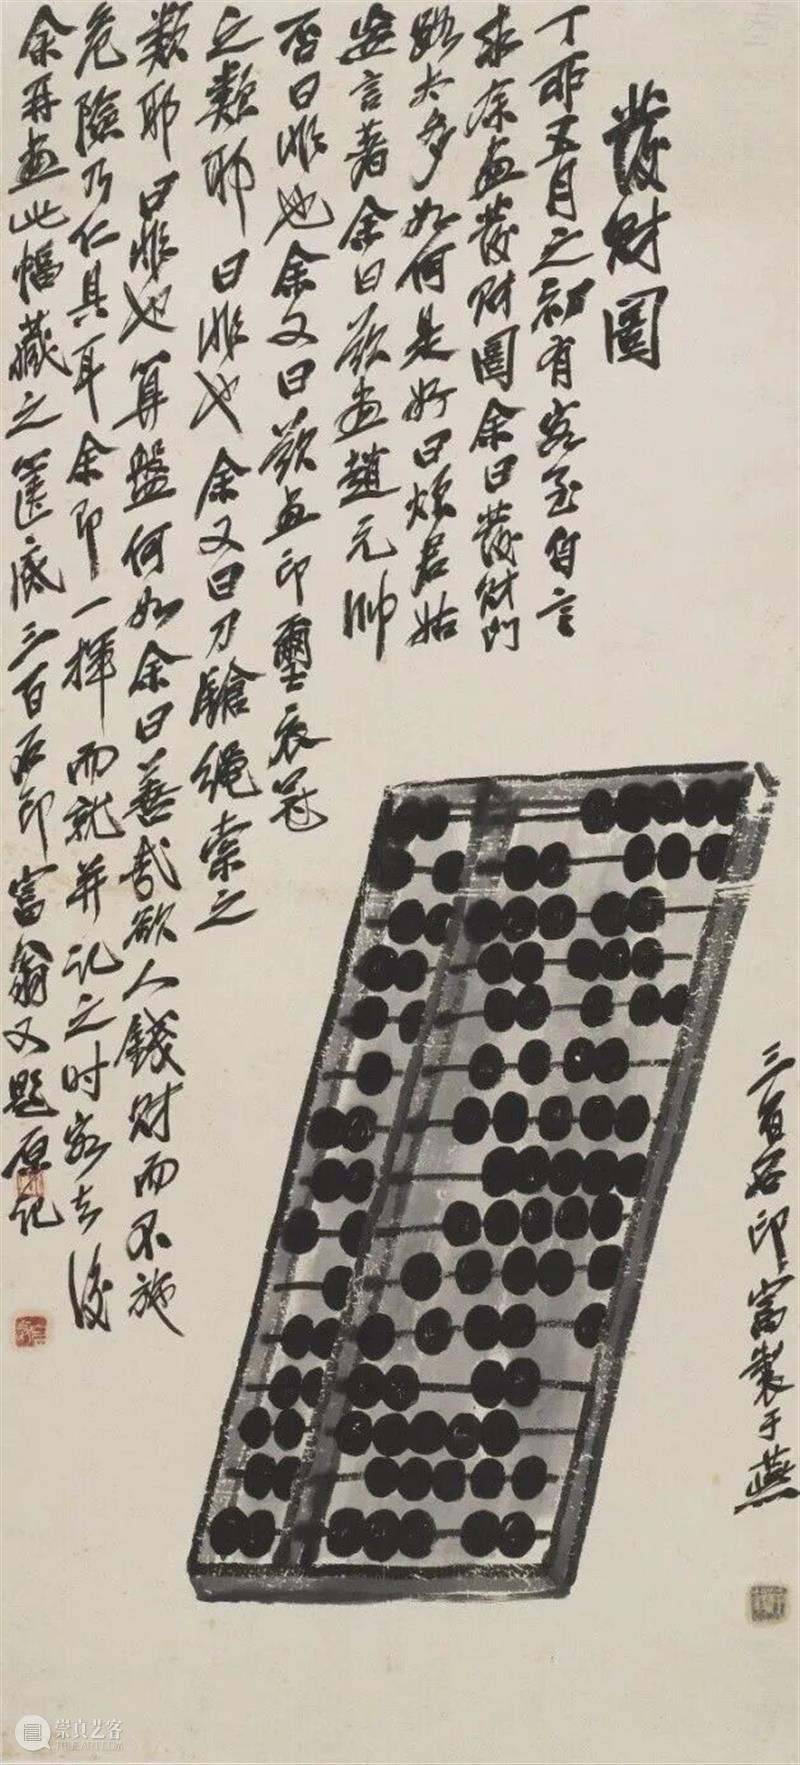 發財圖
丁卯五月之初有客至自言
求余畫發財圖余曰發財門
路太多如何是好曰煩君姑
妄言著余曰欲畫趙元帥
否曰非也余又曰欲畫印璽衣冠
之類耶曰非也余又曰刀鎗繩索之
類耶曰非也算盤何如余曰善哉欲人錢財而不施
危險乃仁具耳余即一揮而就并記之时客去後
余再畫此幅藏之篋底三百石印富翁又題原記
三百石印富製于燕
崇真艺客